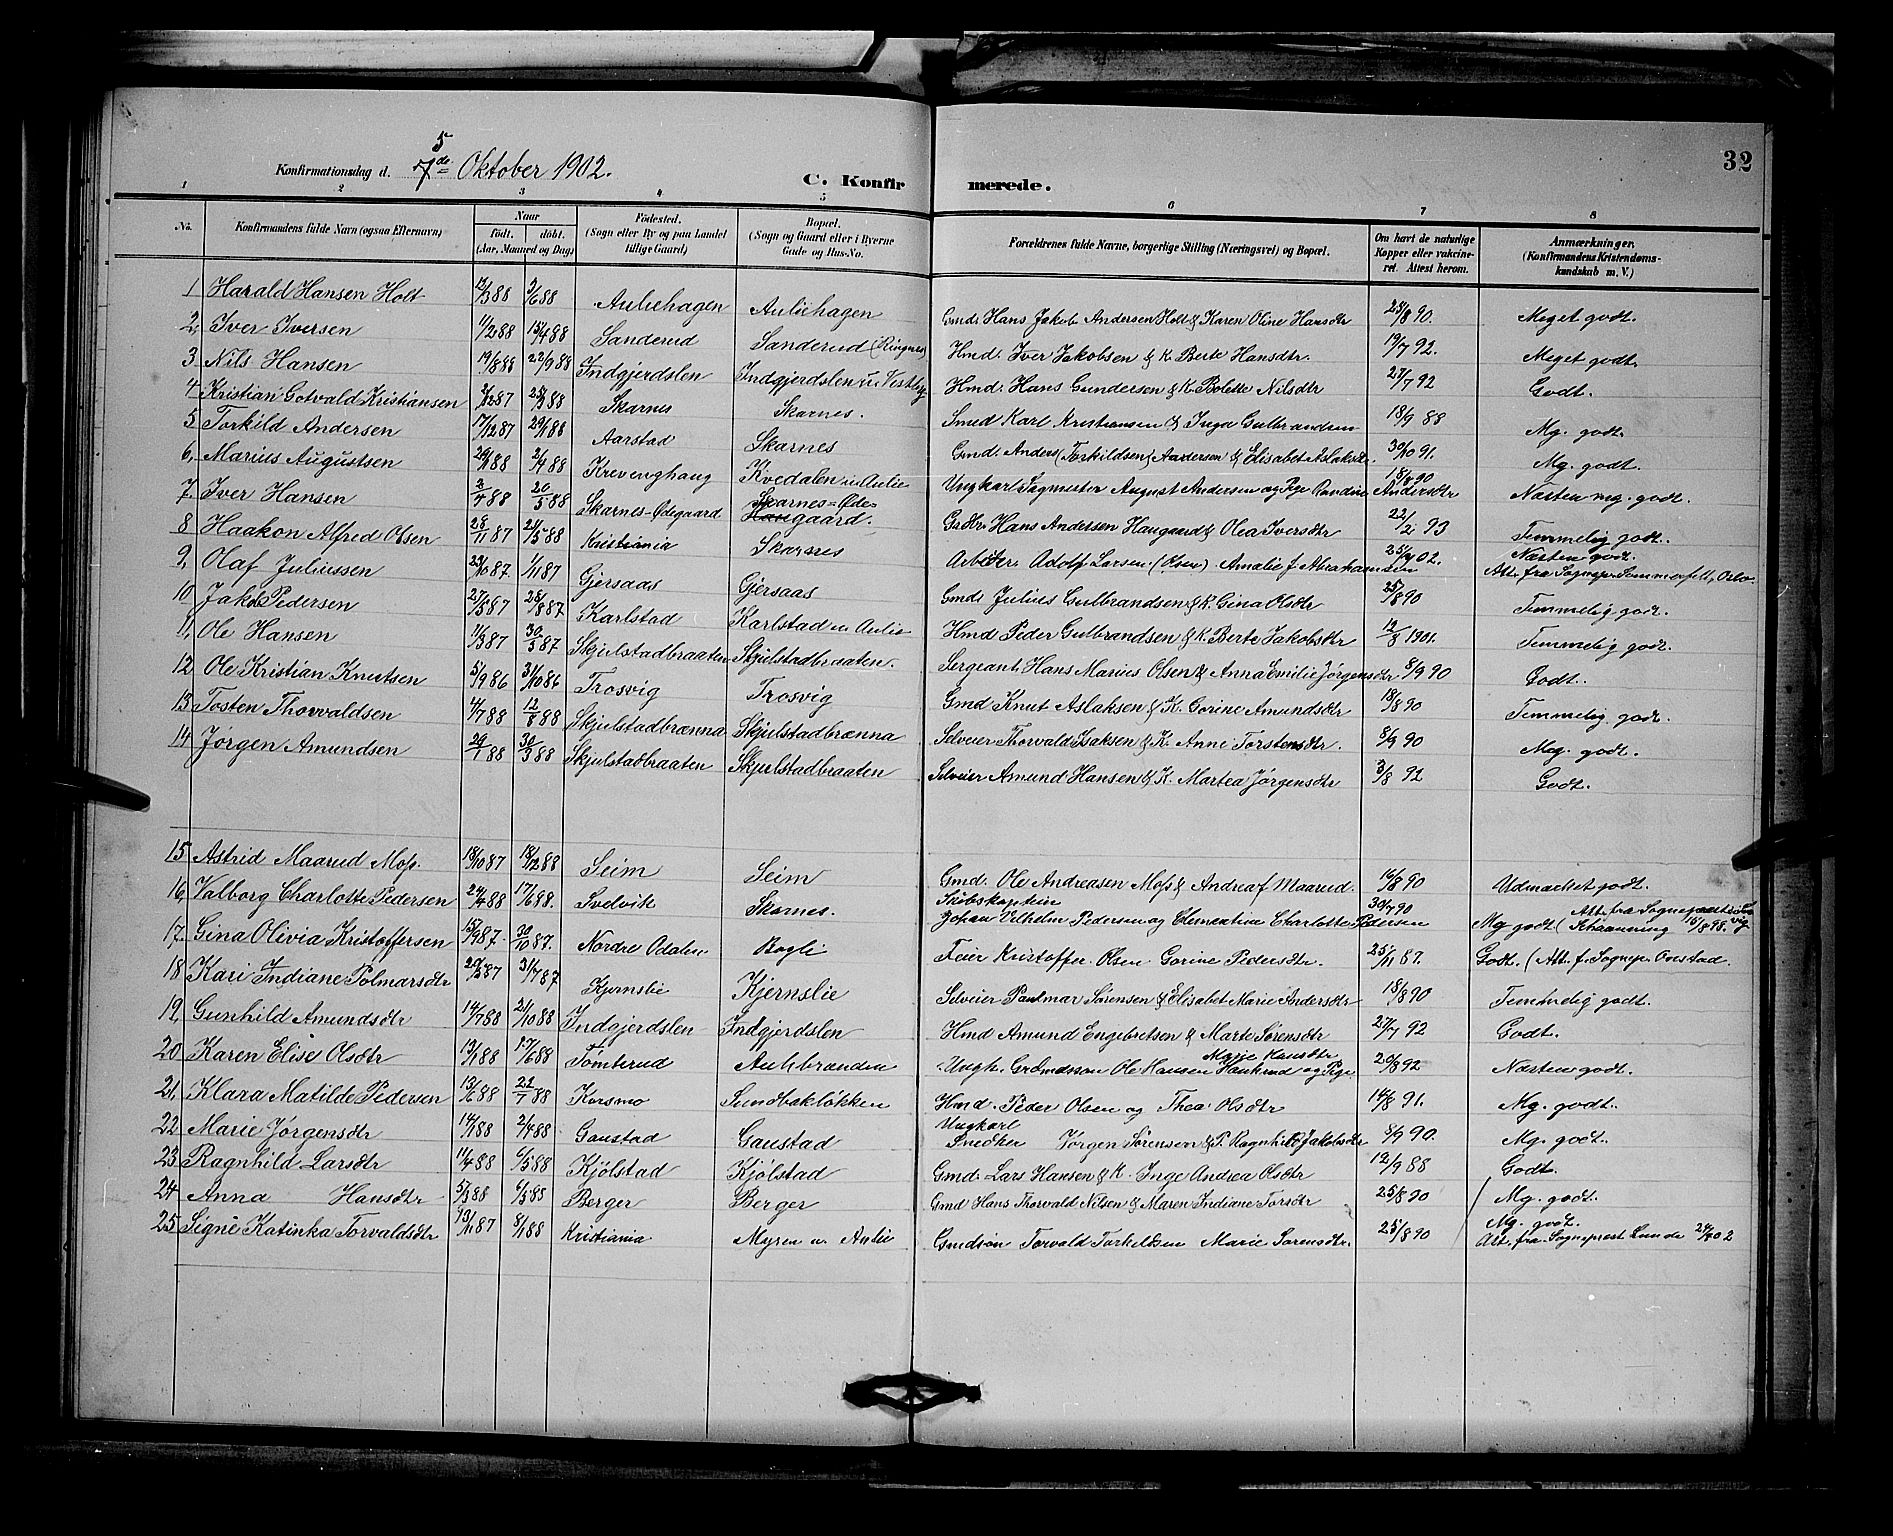 32
5
Konfirmationsdag d. 7de Oktober 1902.
C. Konfirmerede.
1 2 3 4 5 6 7 8
No. Konfirmandens fulde Navn (ogsaa Efternavn) Naar födt. döbt. (Aar, Maaned og Dag) Födested. (Sogn eller By og paa Landet tillige Gaard) Bopæl. (Sogn og Gaard eller i Byerne Gade og Hus-No. Forældrenes fulde Navne, borgerlige Stilling (Næringsvei) og Bopæl. Om havt de naturlige Kopper eller vakcineret. Attest herom. Anmærkninger. (Konfirmandens Kristendomskundskab m. V.)
1 Harald Hansen Holt 12/3 88 3/6 88 Auliehagen Auliehagen Gmd. Hans Jakob Andersen Holt & Karen Oline Hansdtr 25/8 90. Meget godt.
2, Iver Iversen 11/2 88 15/4 88 Sanderud Sanderud (Ringnes) Hmd. Iver Jakobsen & K. Berte Hansdtr. 19/7 92. Meget godt.
3 Nils Hansen 19/8 88 22/9 88 Indgjerdslen Indgjerdslen u. Vestby Hmd. Hans Gundersen & K. Bolette Nilsdtr 27/7 92 Godt.
4 Kristian Gotvald Kristiansen Skarnes Skarnes. Smed Karl Kristiansen & Inga Gulbrandsen 18/9 88 Mg. godt.
5 Torkild Andersen 17/12 87 29/1 88 Aarstad Skarnes Gmd. Anders (Torkildsen) Andersen & Elisabet Aslaksdtr. 30/10 91. Mg. godt.
6, Marius Augustsen 29/1 88 2/4 88 Krevenghaug Kvedalen u. Aulie Ungkarl Sagmester August Andersen og Pige Randine Andersdtr 18/8 90 Næsten mg. godt.
7. Iver Hansen 2/4 88 20/5 88 Skarnes-Ødegaard Skarnes-Ødegaard. Gsdbr. Hans Andersen Haugaard & Olea Iversdtr 22/2 93 Temmelig godt.
8, Haakon Alfred Olsen 28/11 87 21/5 88 Kristiania Skarnes Arbeider Adolf Larsen (Olsen) Amalie f. Abrahamsen 25/9 02. Næsten godt. Att. fra Sognepr. Sommerfelt, Oslo.
9, Olaf Juliussen 23/10 87. 1/11 87 Gjersaas Gjersaas Gmd. Julius Gulbrandsen & K. Gina Olsdtr 25/8 90 Temmelig godt.
10 Jakob Pedersen 27/5 87 28/8 87 Karlstad Karlstad u. Aulie Hmd Peder Gulbrandsen & K. Berte Jakobsdtr 12/8 1901. Temmelig godt.
11, Ole Hansen 11/3 87 30/5 87 Skjulstadbraaten Skjulstadbraaten. Sergeant Hans Marius Olsen & Anna Emilie Jørgensdtr 8/9 90 Godt.
12 Ole Kristian Knutsen 5/9 86 31/10 86 Trosvig Trosvig Gmd Knut Aslaksen & K. Gorine Amundsdtr 18/8 90 Temmelig godt.
13, Tosten Thorvaldsen 4/7 88 12/8 88 Skjulstadbrænna Skjulstadbrænna Selveier Thorvald Isaksen & K. Anne Torstensdtr. 8/9 90 Meg. godt.
14, Jørgen Amundsen 29/1 88 30/3 88 Skjulstadbraaten Skjulstadbraaten Selveier Amund Hansen & K. Martea Jørgensdtr 3/8 92 Godt.
15 Astrid Maarud Moss. 18/10 87 18/12 88 Seim Seim Gmd. Ole Andreasen Moss & Andrea f. Maarud. 16/8 90 Udmærket godt.
16, Valborg Charlotte Pedersen 24/4 88 17/6 88. Svelvik Skarnes. Skibskaptein Johan Vilhelm Pedersen og Clementine Charlotte Pedersen 30/7 90 Mg godt (Att. fra Sogneprest Schaanning 16/8 98.
17. Gina Olivia Kristoffersen 15/9 87. 30/10 87. Nordre Odalen Bogli Feier Kristoffer Olsen Gorine Pedersdtr. 25/11 87. Godt. (Att. f. Sognepr. Onstad.
18 Kari Indiane Polmarsdtr 20/5 87 31/7 87 Kjernslie Kjernslie Selveier Paulmar Sørensen & Elisabet Marie Andersdtr 18/8 90 Temmelig godt.
19, Gunhild Amundsdtr 14/7 88 21/10 88 Indgjerdslen Indgjerdslen Hmd Amund Engebretsen & Marte Sørensdtr 27/7 92 Godt.
20 Karen Elise Olsdtr 19/1 88 17/6 88 Tomterud Auliebranden Ungk. Grdmdssøn Ole Hansen Haukrud og Pige Marie Hansdtr 20/8 92 Næsten godt.
21, Klara Matilde Pedersen 13/6 88 22/7 88 Korsmo Sundbakløkken Hmd. Peder Olsen og Thea Olsdtr 14/8 91. Mg. godt.
22 Marie Jørgensdtr 14/1 88 2/4 88 Gaustad Gaustad Ungkarl Snedker Jørgen Sørensen & P. Ragnhild Jakobsdtr 8/9 90. Mg. godt.
23 Ragnhild Larsdtr 11/4 88 6/5 88 Kjølstad Kjølstad Gmd. Lars Hansen & K. Inge Andrea Olsdtr 12/9 88 Godt.
24 Anna Hansdtr 5/3 88 6/5 88 Berger Berger Gmd Hans Thorvald Nilsen & Maren Indiane Torsdtr 25/8 90 Mg. godt.
25 Signe Katinka Torvaldsdtr 13/11 87 8/1 88 Kristiania Myren u. Aulie Gmdsøn Torvald Torkelsen Marie Sørensdtr. 25/8 90 Mg. godt. Att. fra Sogneprest Lunde 24/9 02